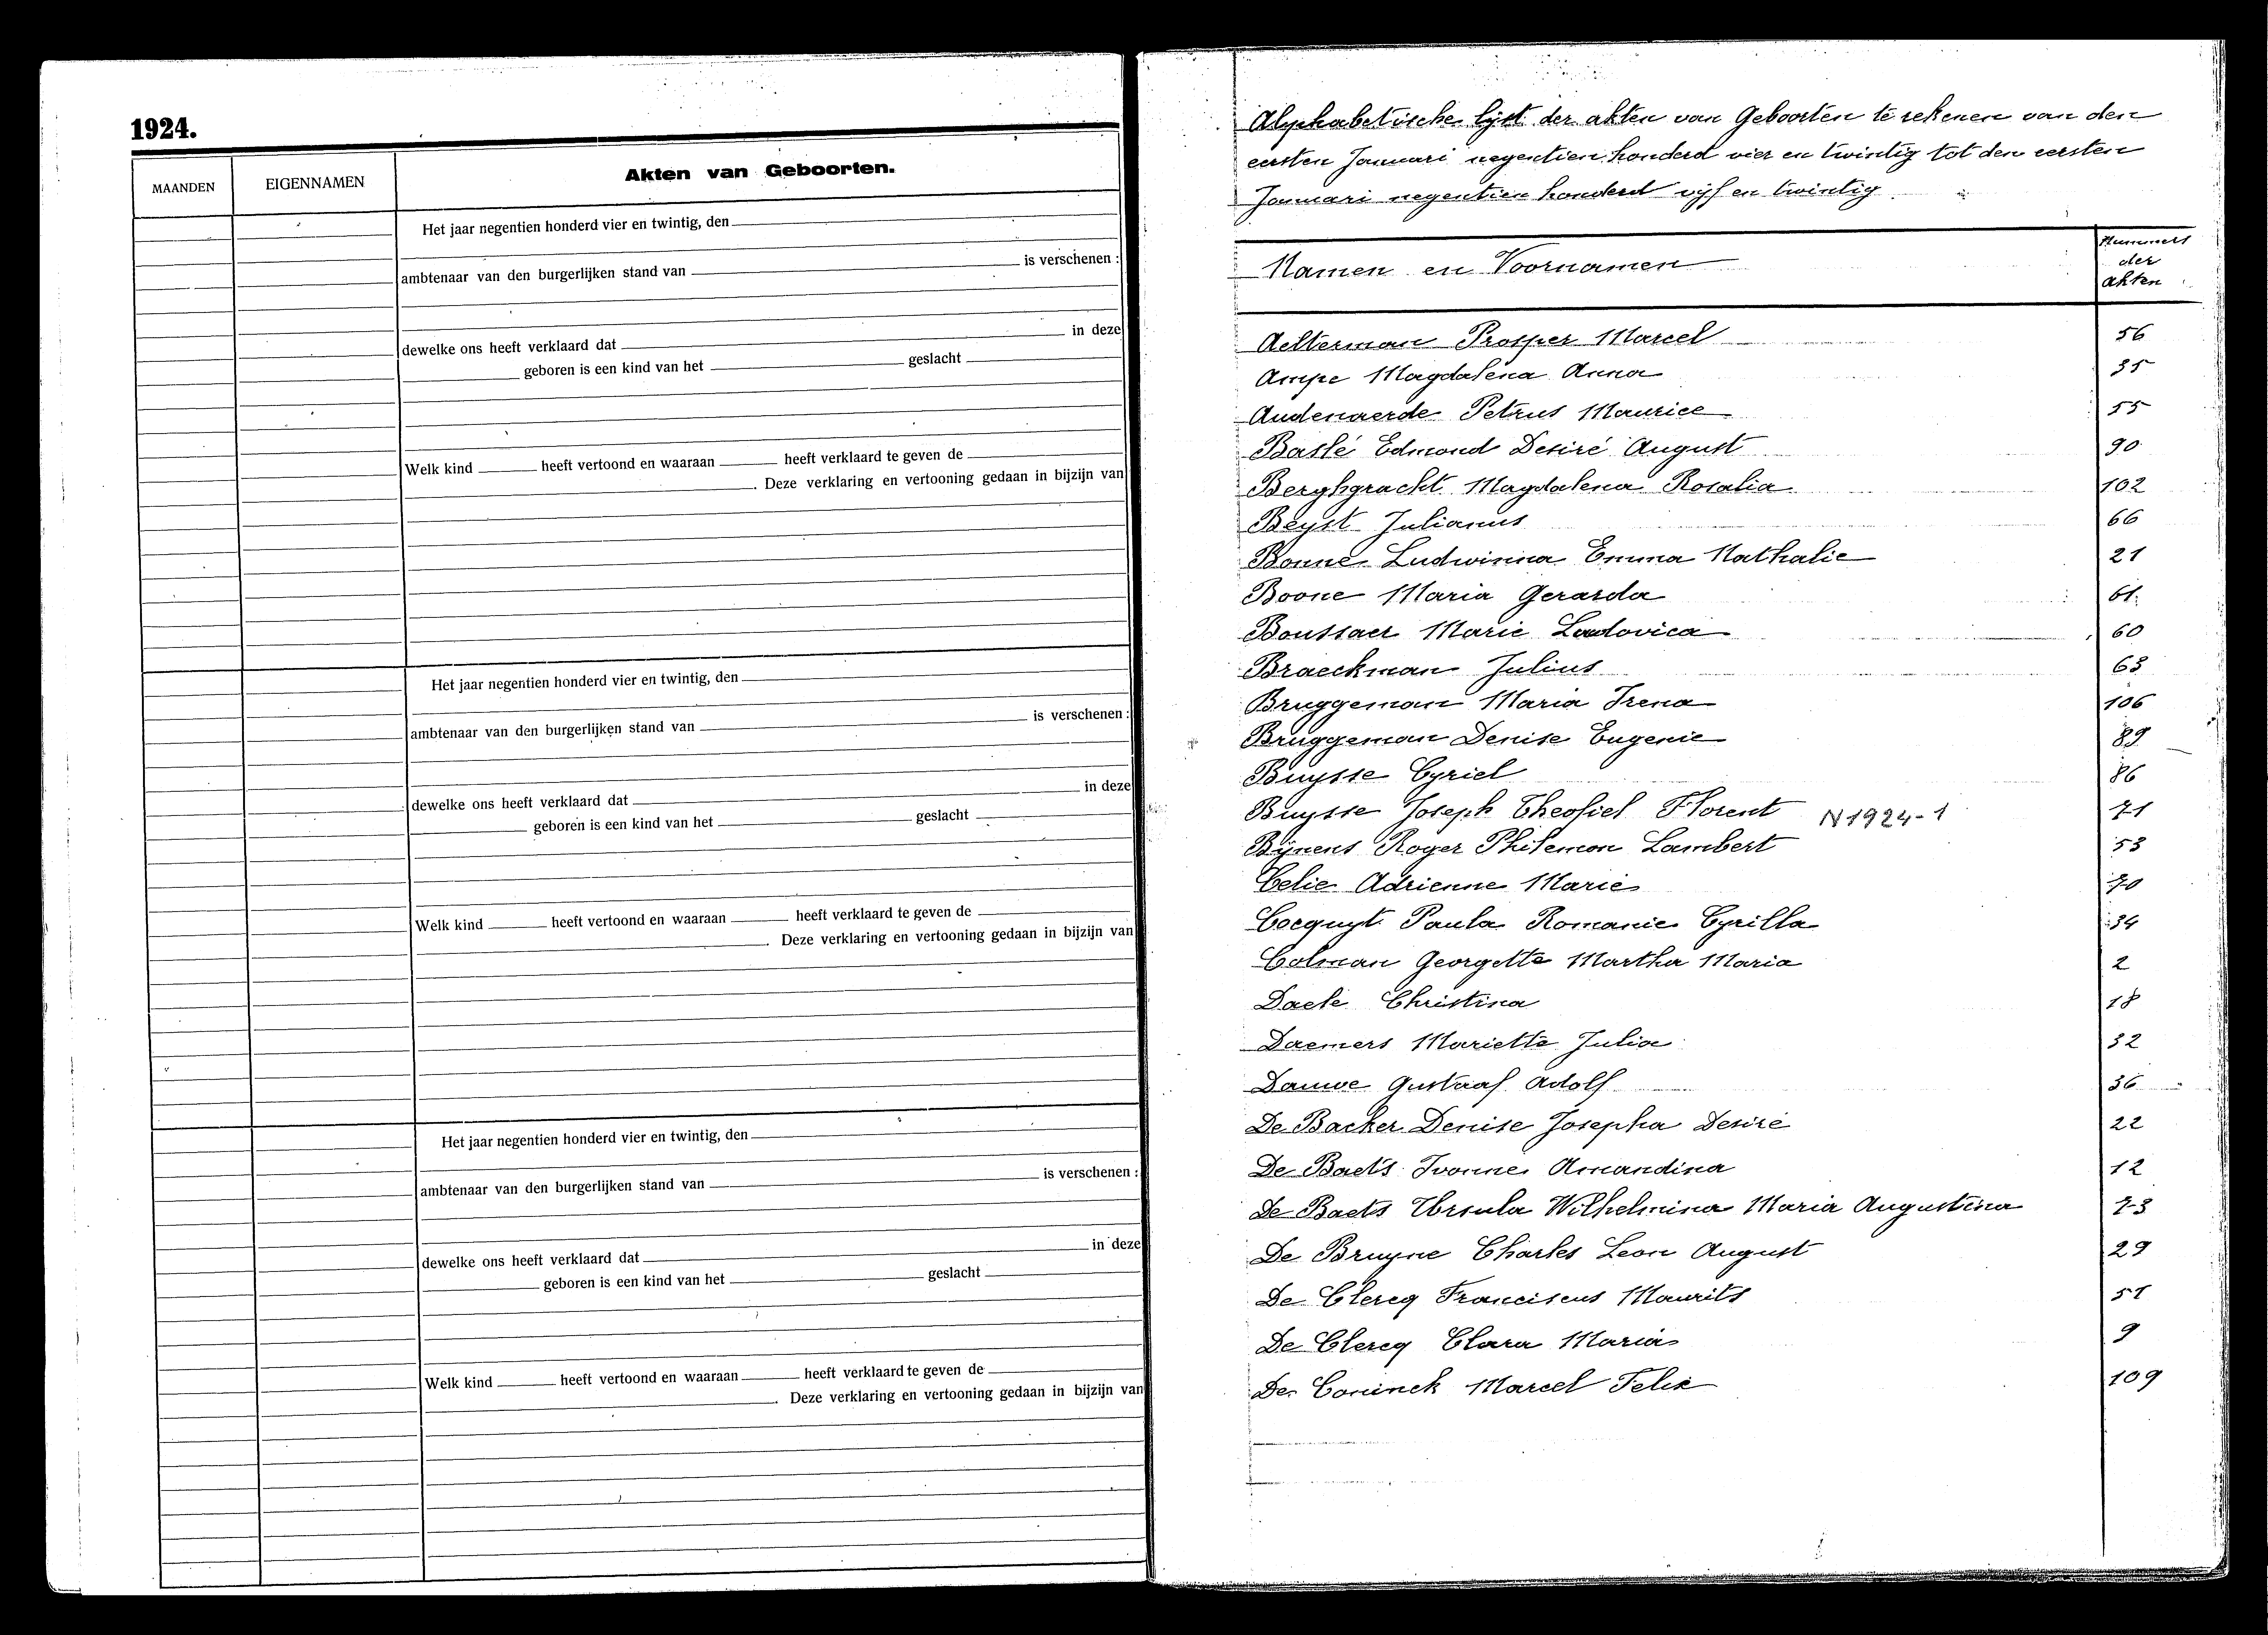 1924.
MAANDEN EIGENNAMEN Akten van Geboorten.
Het jaar negentien honderd vier en twintig, den
ambtenaar van den burgerlijken stand van is verschenen :
dewelke ons heeft verklaard dat in deze
geboren is een kind van het geslacht
Welk kind heeft vertoond en waaraan heeft verklaard te geven de
. Deze verklaring en vertooning gedaan in bijzijn van
Het jaar negentien honderd vier en twintig, den
ambtenaar van den burgerlijken stand van is verschenen :
dewelke ons heeft verklaard dat in deze
geboren is een kind van het geslacht
Welk kind heeft vertoond en waaraan heeft verklaard te geven de
. Deze verklaring en vertooning gedaan in bijzijn van
Het jaar negentien honderd vier en twintig, den
ambtenaar van den burgerlijken stand van is verschenen :
dewelke ons heeft verklaard dat in deze
geboren is een kind van het geslacht
Welk kind heeft vertoond en waaraan heeft verklaard te geven de
. Deze verklaring en vertooning gedaan in bijzijn van
Alphabetische lijst der akten van Geboorten te rekenen van den
eersten Januari negentien honderd vier en twintig tot den eersten
Januari negentien honderd vijf en twintig
Namen en Voornamen
Nummers
der
akten
Aelterman Prosper Marcel 56
Ampe Magdalena Anna 35
Audenaerde Petrus Maurice 55
Baslé Edmond Desiré August 90
Berghgracht Magdalena Rosalia 102
Beyst Julianus 66
Bonne Ludwinna Emma Nathalie 21
Boone Maria Gerarda 61
Boussaer Marie Ludovica 60
Braeckman Julius 63
Bruggeman Maria Irena 106
Bruggeman Denise Eugenie 89
Buysse Cyriel 86
Buysse Joseph Theofiel Florent N1924-1 71
Bijnens Roger Philemon Lambert 53
Celie Adrienne Marie 70
Cocquyt Paula Romanie Cyrilla 34
Colman Georgette Martha Maria 2
Daele Christina 18
Daemers Mariette Julia 32
Dauwe Gustaaf Adolf 36
De Backer Denise Josepha Desiré 22
De Baets Ivonne Amandina 12
De Baets Ursula Wilhelmina Maria Augustina 73
De Bruyne Charles Leon August 29
De Clercq Franciscus Maurits 51
De Clercq Clara Maria 9
De Coninck Marcel Felix 109